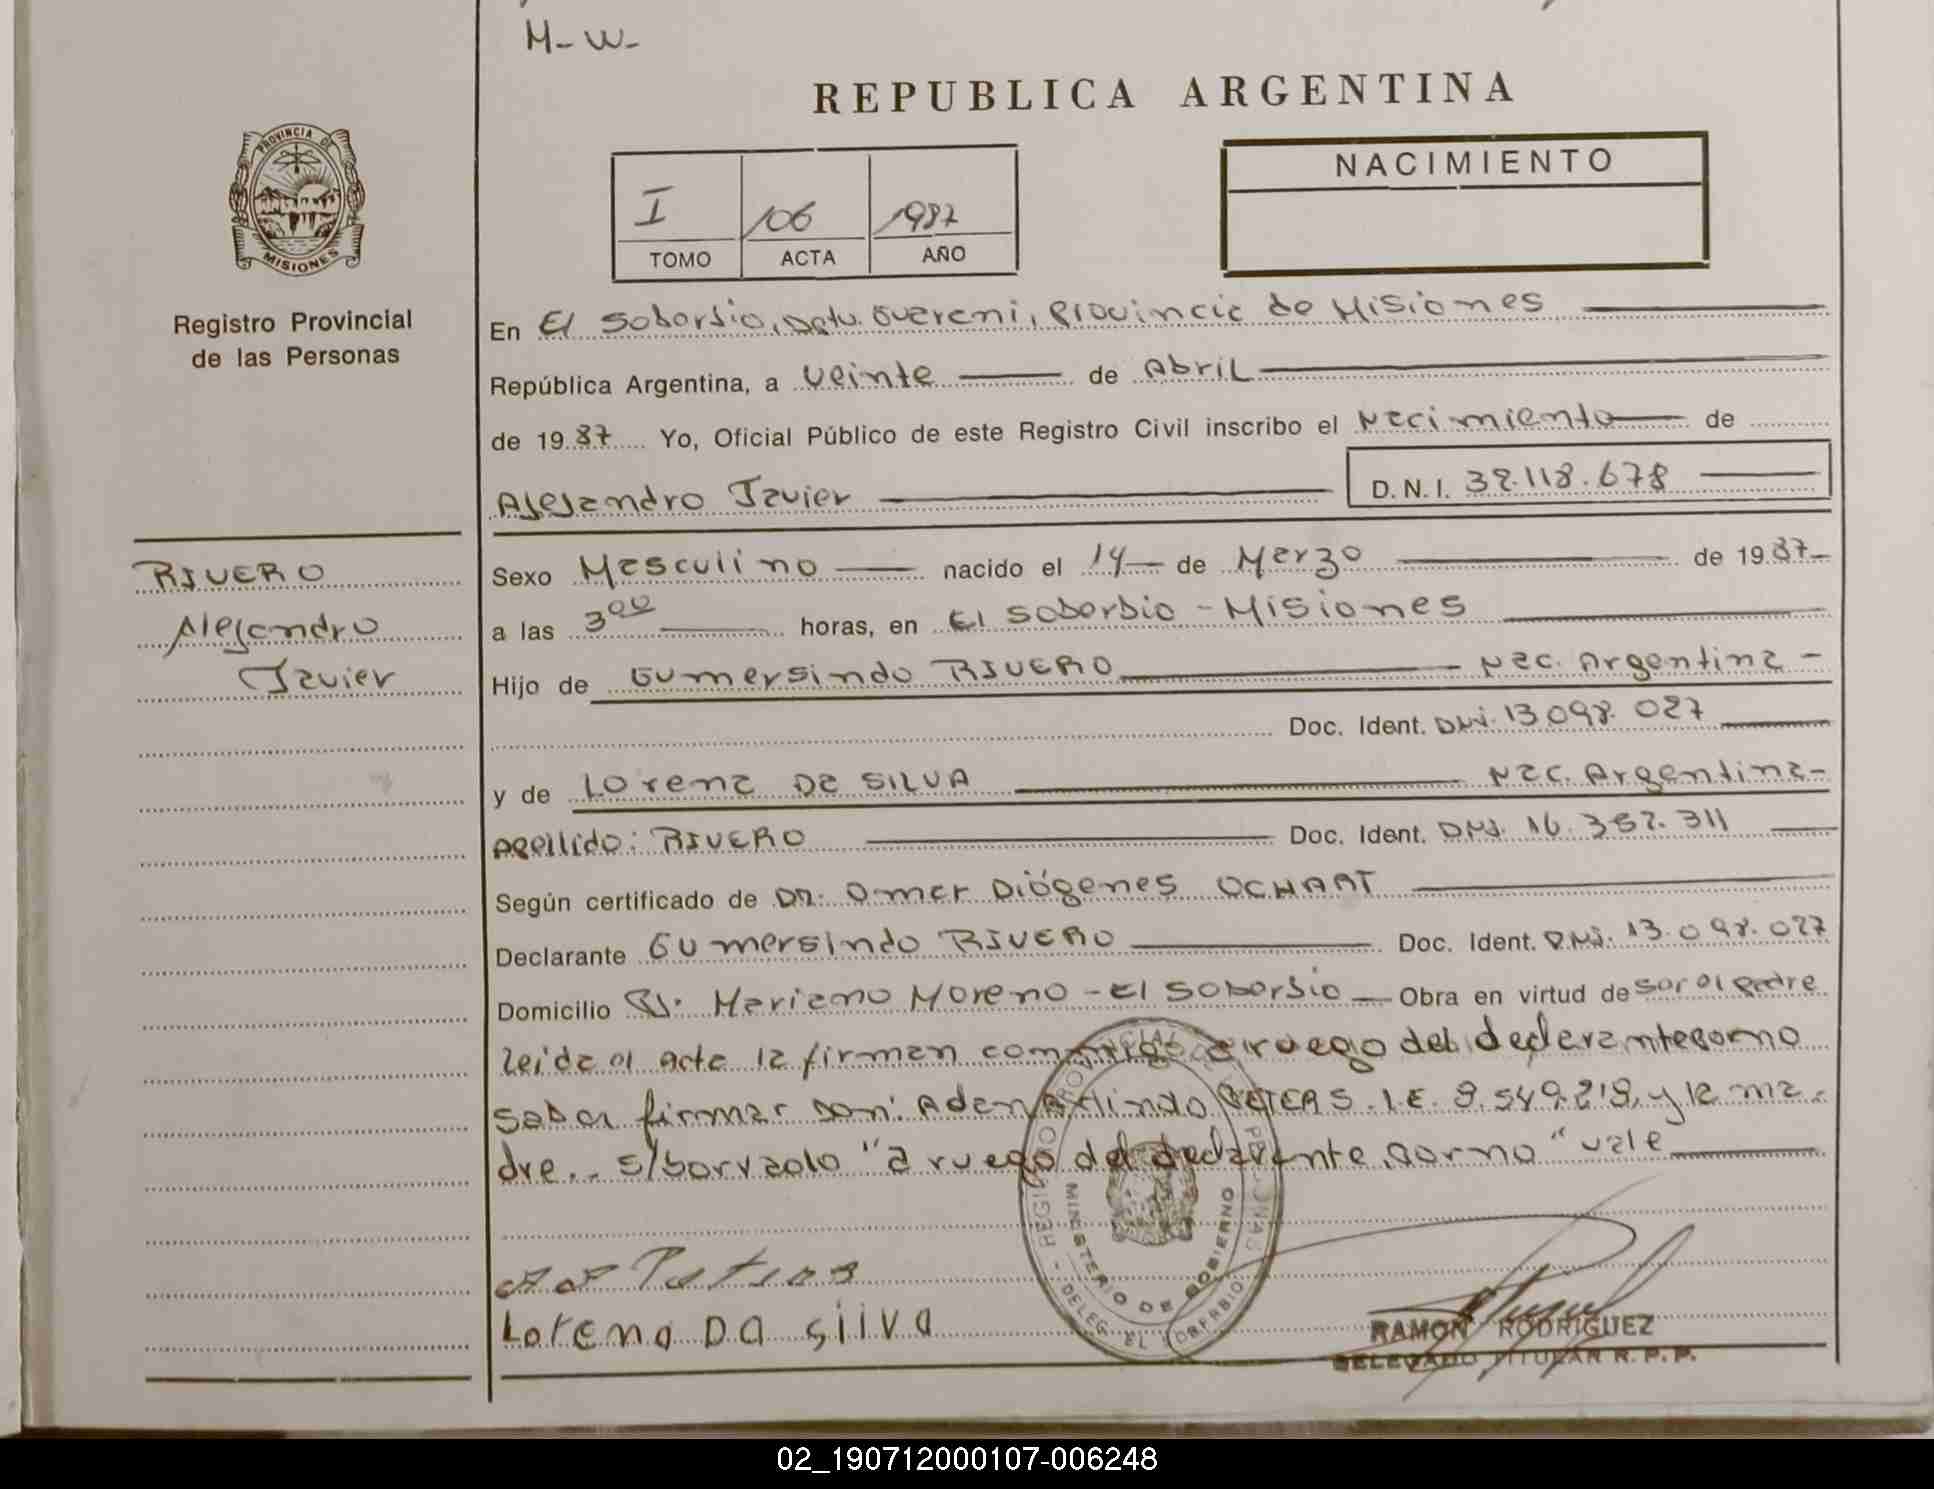 M-W-
REPUBLICA ARGENTINA
PROVINCIA DE
MISIONES
NACIMIENTO
I 106 1987
TOMO ACTA AÑO
Registro Provincial
de las Personas
En El Soberbio, Dptu. Guarani, Provincia de Misiones
República Argentina, a veinte de Abril
de 1987 Yo, Oficial Público de este Registro Civil inscribo el Nacimiento de
Alejandro Javier D.N.I. 32.118.678
RIVERO
Alejandro
Javier
Sexo Masculino nacido el 14 de Marzo de 1987
a las 3 00 horas, en El Soberbio - Misiones
Hijo de Gumersindo RIVERO Nac. Argentina -
Doc. Ident. DNI. 13.098.027
y de Lorena DA SILVA Nac. Argentina-
Apellido: RIVERO Doc. Ident. DNI. 16.352.311
Según certificado de DR. Omar Diógenes OCHART
Declarante Gumersindo RIVERO Doc. Ident. DNI. 13.098.027
Domicilio B°. Mariano Moreno - El Soberbio Obra en virtud de ser el padre
leida el acta la firman conmigo a ruego del declarante por no
saber firmar don: PETERS. I.E. 8.549.219, y la ma-
dre.- s/borrado "a ruego del declarante, por no" vale
Lorena DA Silva
MINISTERIO DE GOBIERNO
DELEG. EL SOBERBIO
RAMON RODRIGUEZ
DELEGADO TITULAR R.P.P.
02_190712000107-006248